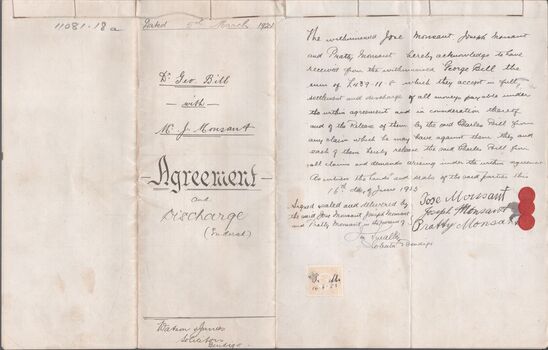 11081.18a
Dated 5th March 1921
Dr Geo Bill
with
W. J. Monsant
Agreement
and
Discharge
(Indorsd)
Watson & James
Solicitors
Bendigo
The withinnamed Jose Monsant Joseph Monsant
and Pratty Monsant hereby acknowledge to have
received from the withinnamed George Bill the
sum of £439.11.8 which they accept in full
settlement and discharge of all moneys payable under
the within agreement and in consideration thereof
and of the Release of them by the said Charles Bill from
any claim which he may have against them they and
each of them hereby release the said Charles Bill from
all claims and demands arising under the within agreement
As witness the hands and seals of the said parties this
16th day of June 1923
Signed sealed and delivered by
the said Jose Monsant Joseph Monsant
and Pratty Monsant in the presence of
Solicitor Bendigo
Jose Monsant
Joseph Monsant
Pratty Monsant